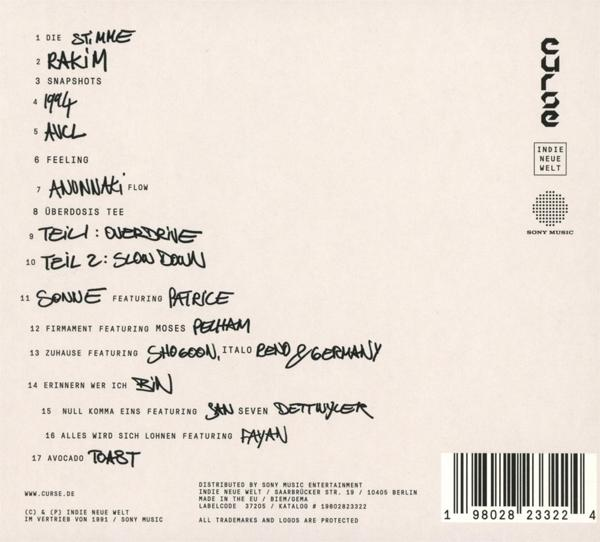 1 DIE STIMME
2 RAKIM
3 SNAPSHOTS
4 1994
5 AVCL
6 FEELING
7 ANONNAKI FLOW
8 ÜBERDOSIS TEE
9 TEIL 1: OVERDRIVE
10 TEIL 2: SLOW DOWN
11 SONNE FEATURING PATRICE
12 FIRMAMENT FEATURING MOSES PELHAM
13 ZUHAUSE FEATURING SHOGOON, ITALO RENO & GERMANY
14 ERINNERN WER ICH BIN
15 NULL KOMMA EINS FEATURING JAN SEVEN DETTWYLER
16 ALLES WIRD SICH LOHNEN FEATURING FAYAN
17 AVOCADO TOAST
curse
INDIE
NEUE
WELT
SONY MUSIC
WWW.CURSE.DE
(C) & (P) INDIE NEUE WELT
IM VERTRIEB VON 1991 / SONY MUSIC
DISTRIBUTED BY SONY MUSIC ENTERTAINMENT
INDIE NEUE WELT / SAARBRÜCKER STR. 19 / 10405 BERLIN
MADE IN THE EU / BIEM/GEMA
LABELCODE 37205 / KATALOG # 19802823322
ALL TRADEMARKS AND LOGOS ARE PROTECTED
1 98028 23322 4